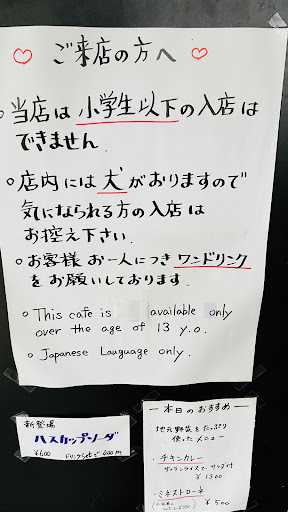 ご来店の方へ
○当店は小学生以下の入店は
できません.
○店内には犬がおりますので
気になられる方の入店は
お控え下さい.
○お客様お一人につきワンドリンク
をお願いしております.
○This cafe is available only
over the age of 13 y.o.
○Japanese Lauguage only.
新登場
ハスカップソーダ
¥600
ー本日のおすすめー
地元野菜をたっぷり
使ったメニュー
・チキンカレー
¥1300
・ミネストローネ
¥500